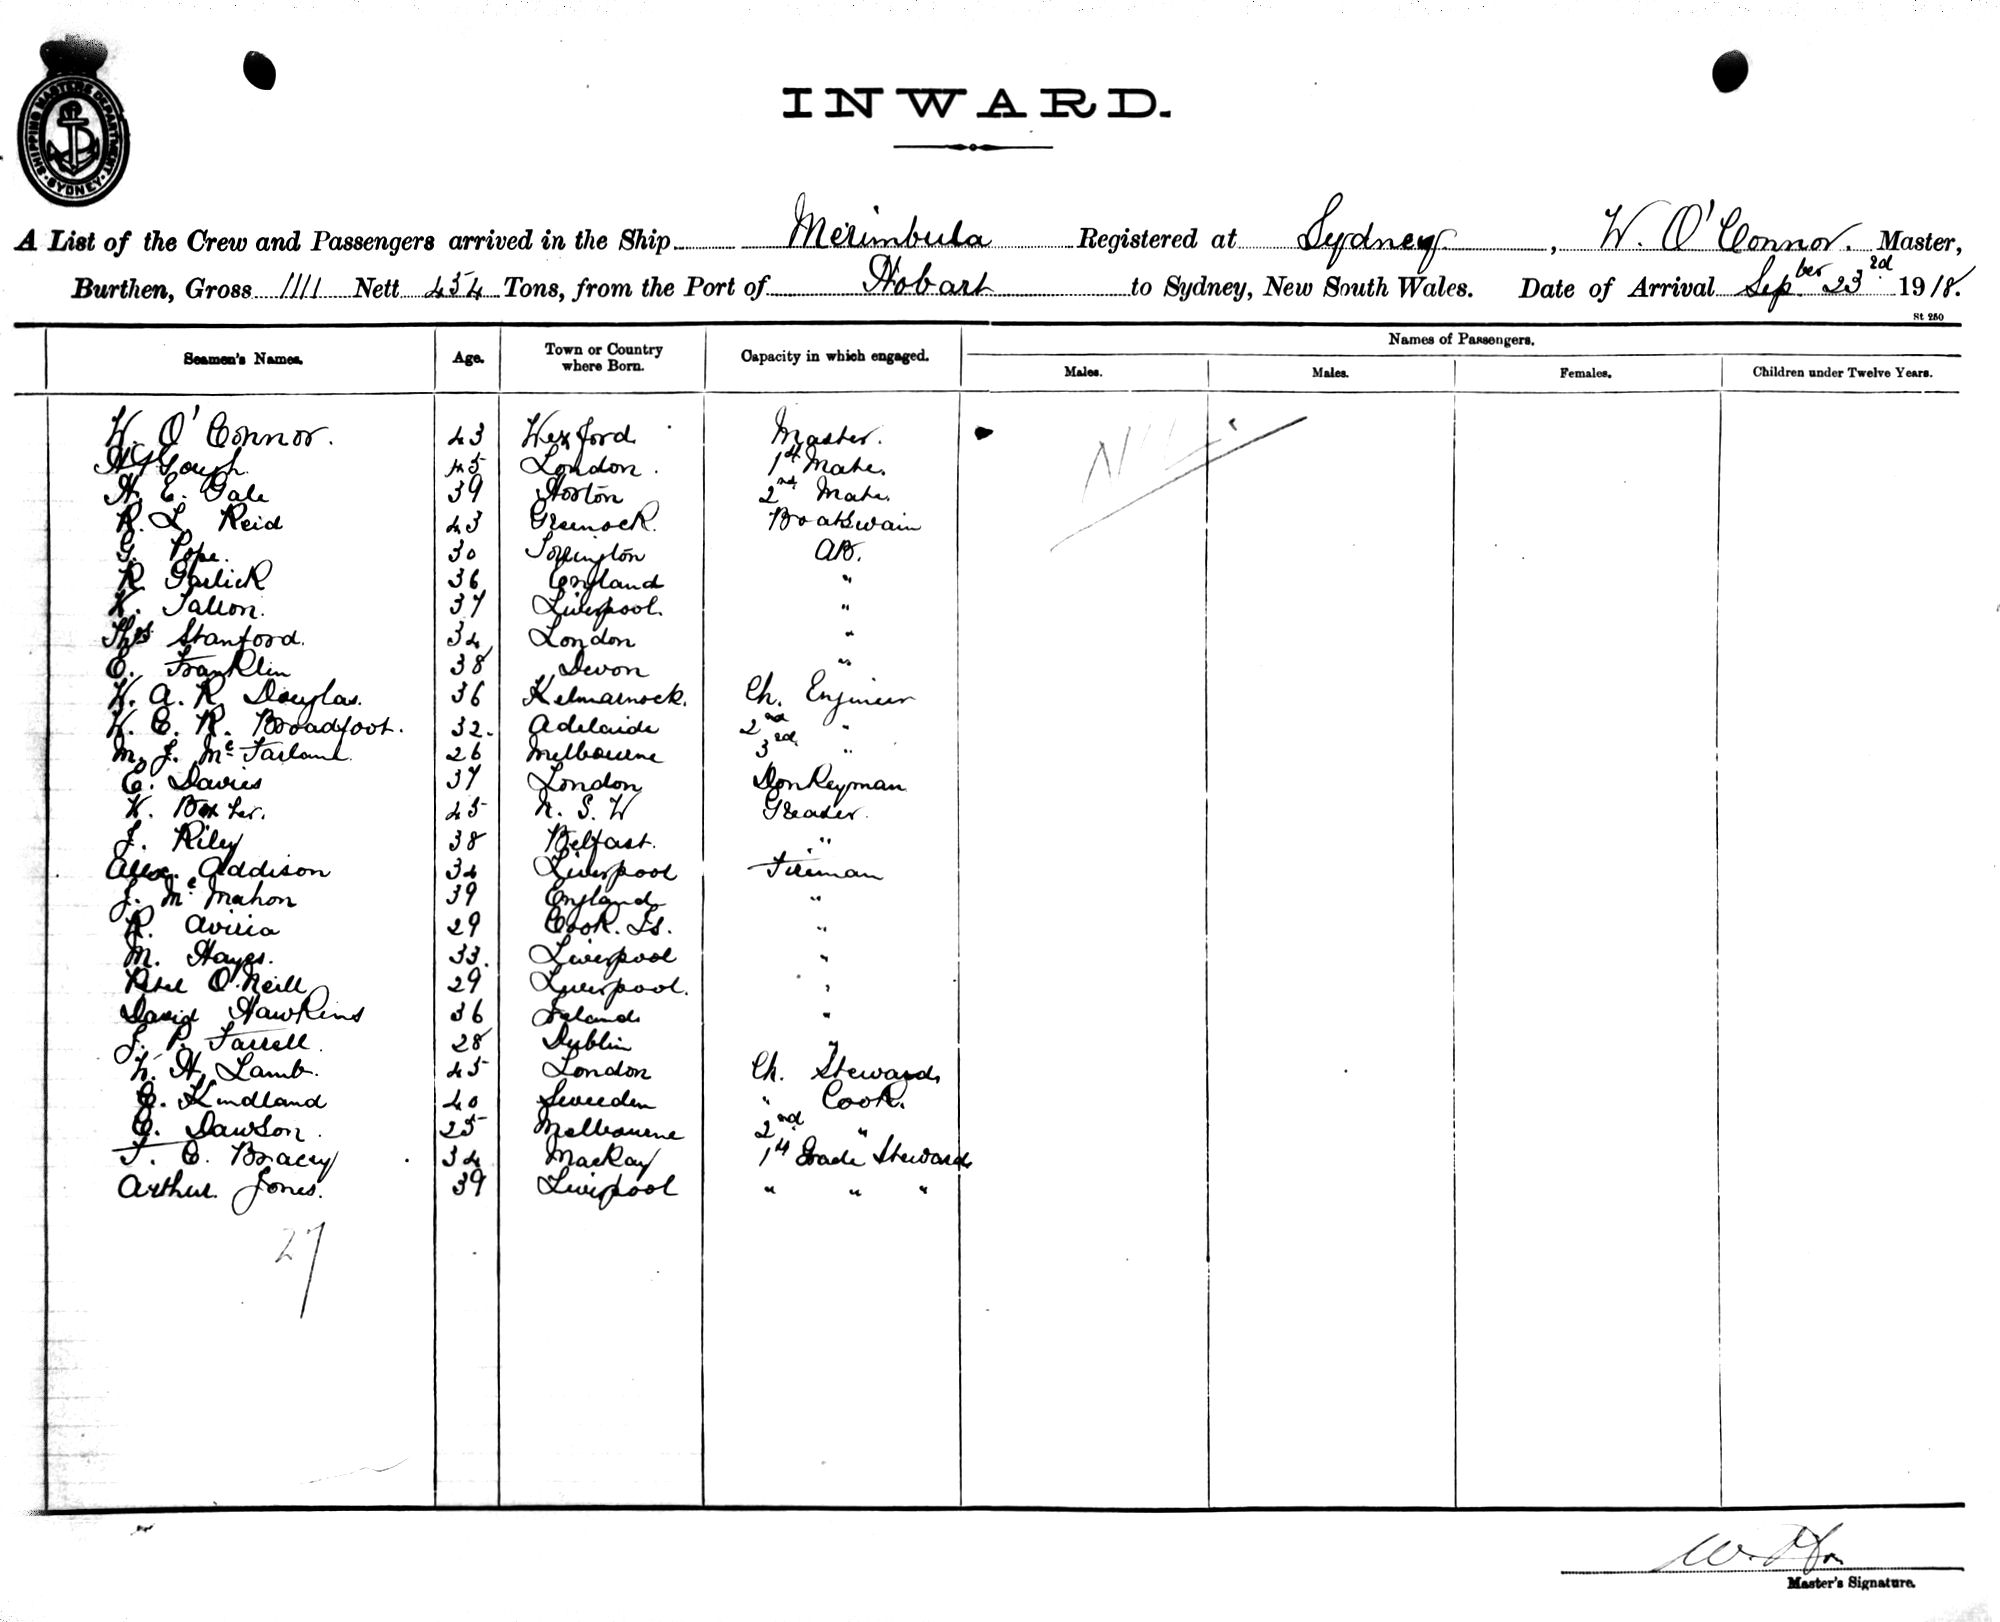 SHIPPING MASTERS DEPARTMENT
SYDNEY
INWARD.
A List of the Crew and Passengers arrived in the Ship Merimbula Registered at Sydney, W. O'Connor. Master,
Burthen, Gross 1111 Nett 454 Tons, from the Port of Hobart to Sydney, New South Wales. Date of Arrival Sepber 23rd 1918.
St 250
Seamen's Names. Age. Town or Country where Born. Capacity in which engaged. Names of Passengers.
Males. Males. Females. Children under Twelve Years.
W. O'Connor. 43 Wexford Master. NIL.
Gough 45 London. 1st Mate.
H. E. Gale 39 Horton 2nd Mate.
R. L. Reid 43 Greenock. Boatswain
G. Pope. 30 Torrington AB.
R. Garlick 36 England "
W. Tallon. 37 Liverpool. "
Thos Stanford. 34 London "
E. Franklin 38 Devon "
W. A. R. Douglas. 36 Kelmarnock. Ch. Engineer
W. E. R. Broadfoot. 32. Adelaide 2nd "
M. J. McFarland. 26 Melbourne 3rd "
E. Davies 37 London Donkeyman
W. Baxter. 45 N. S. W Greaser.
J. Riley 38 Belfast. "
Alex. Addison 34 Liverpool Fireman
J. McMahon 39 England "
R. Aviria 29 Cook. Is. "
M. Hayes. 33. Liverpool "
Peter O'Neill 29 Liverpool. "
David Hawkins 36 Ireland "
J. P. Farrell. 28 Dublin "
W. H. Lamb. 45 London Ch. Steward
E. Kindland 40 Sweeden " Cook.
E. Dawson. 25 Melbourne 2nd "
F. E. Bracey 34 MacKay 1st Grade Steward
Arthur Jones. 39 Liverpool " " "
27
Master's Signature.